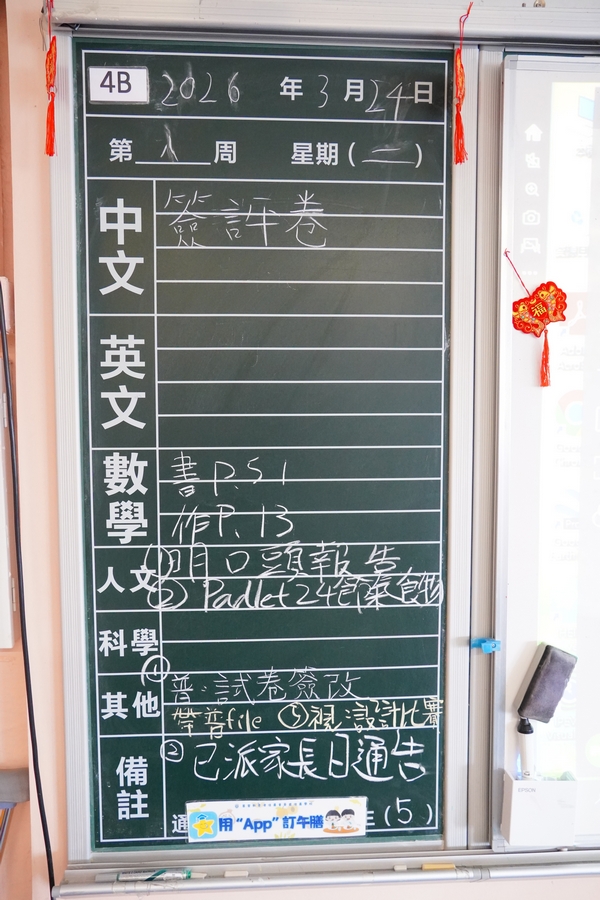 4B 2026 年 3 月 24 日
第 八 周 星期 ( 二 )
中文 簽評卷
英文
數學 書 P.51
作 P.13
人文 ①明口頭報告
② Padlet 24節氣食物
科學
其他 ① 普:試卷簽改
帶音file ③視:設計比賽
備註 ② 已派家長日通告
通 (5)
用“App”訂午膳
福
EPSON